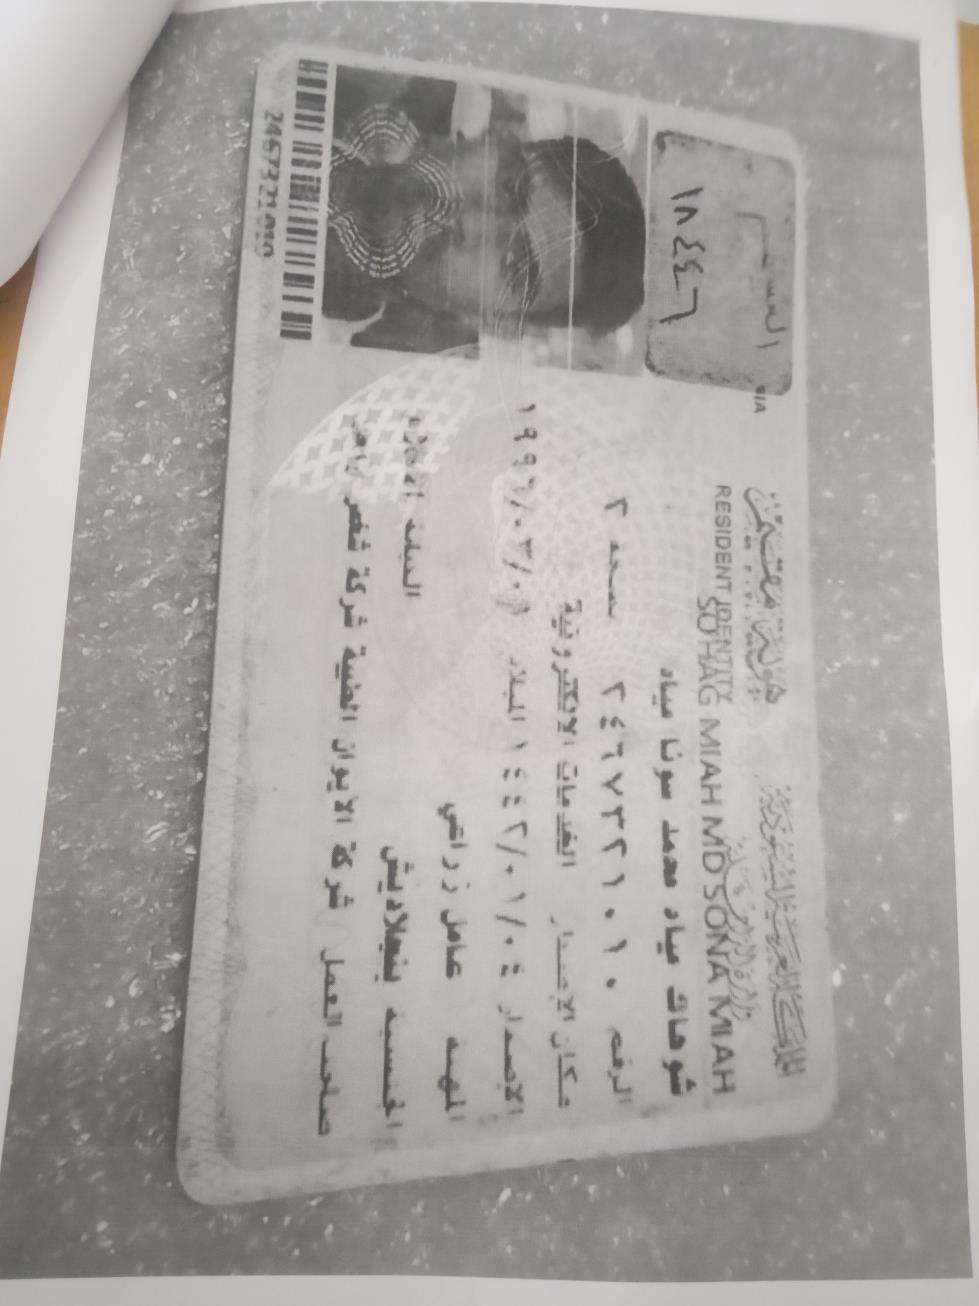 المملكة العربية السعودية
وزارة الداخلية
هوية مقيم
RESIDENT IDENTITY
SOHAG MIAH MD SONA MIAH
شوهاك مياه محمد سونا مياه
الرقم ٢٤٦٧٣٢١٠١٠ نسخة ٢
مكان الإصدار الخدمات الالكترونية
الإصدار ١٤٤٢/٠١/٠٤ الميلاد
المهنة عامل زراعي
الجنسية بنجلاديش الديانة
صاحب العمل شركة الايوان
١٨٤٤٦
2467321010